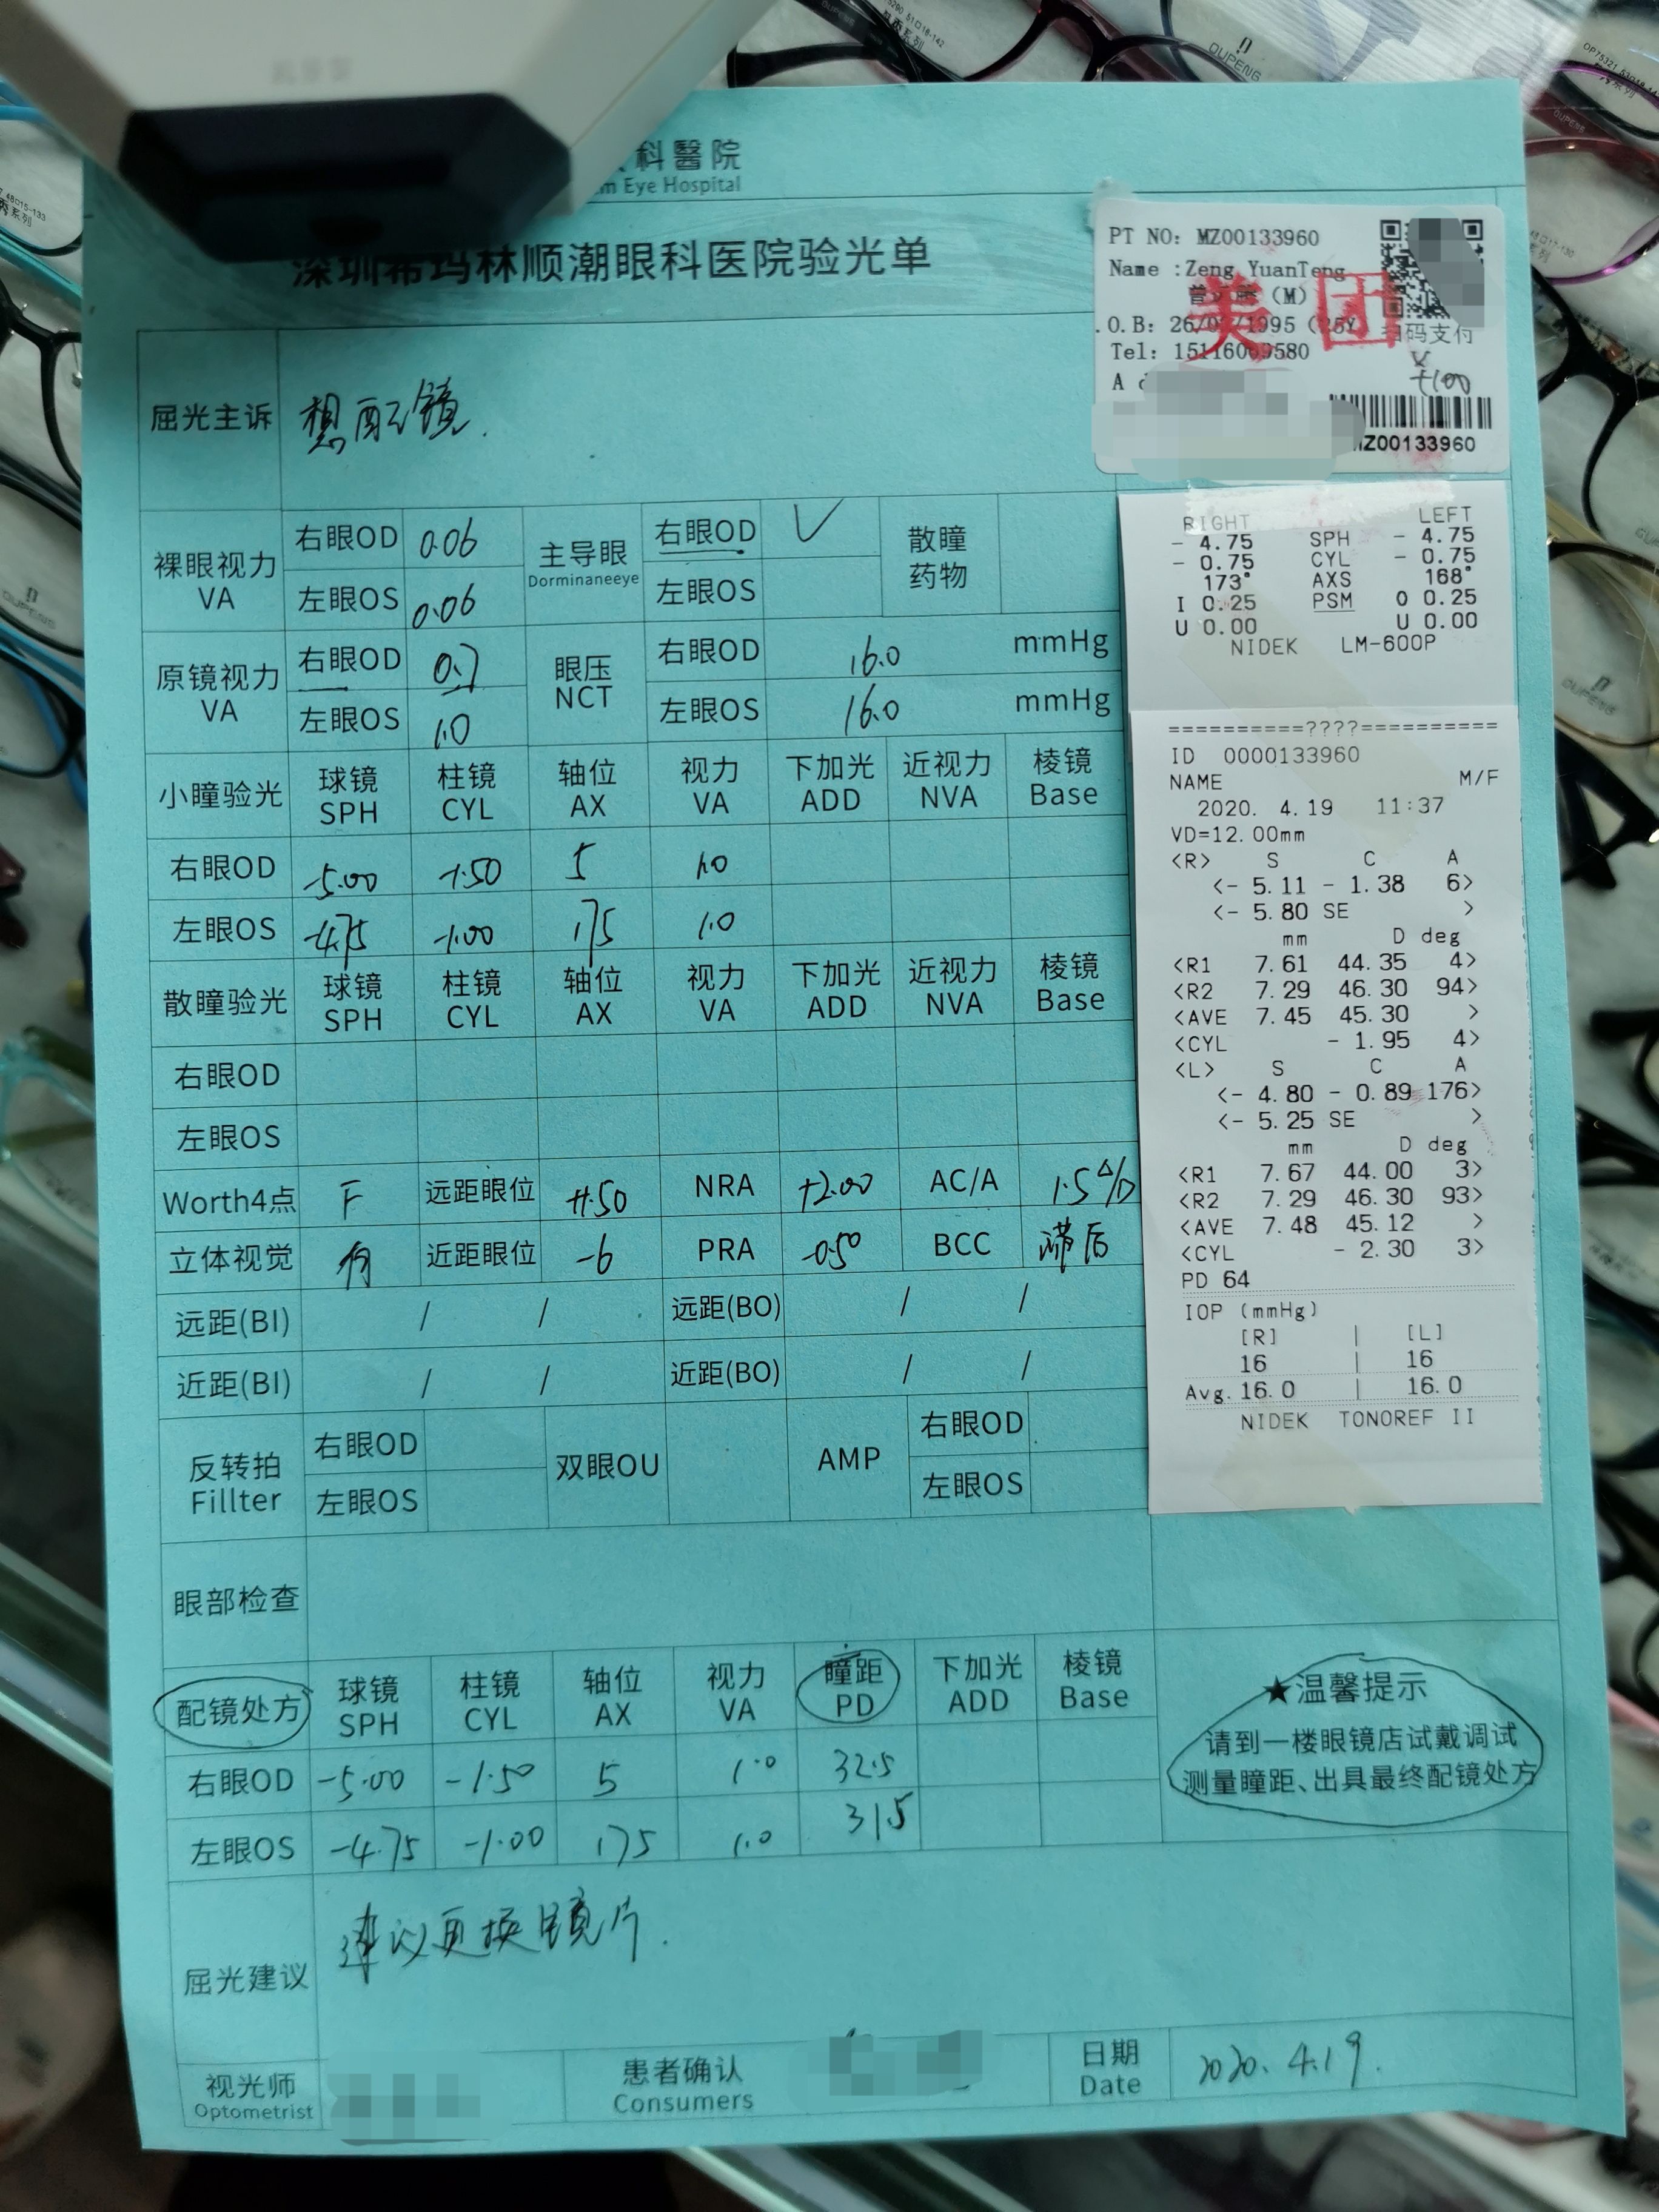 科醫院
m Eye Hospital
深圳希玛林顺潮眼科医院验光单
PT NO: MZ00133960
Name :Zeng YuanTeng
(M)
.O.B: 26/ /1995 (25Y
扫码支付
Tel: 15116069580
美团
+100
MZ00133960
屈光主诉 想配镜.
裸眼视力 VA 右眼OD 0.06 主导眼 Dorminaneeye 右眼OD √ 散瞳药物
左眼OS 0.06 左眼OS
原镜视力 VA 右眼OD 0.7 眼压 NCT 右眼OD 16.0 mmHg
左眼OS 1.0 左眼OS 16.0 mmHg
小瞳验光 球镜 SPH 柱镜 CYL 轴位 AX 视力 VA 下加光 ADD 近视力 NVA 棱镜 Base
右眼OD -5.00 -1.50 5 1.0
左眼OS -4.75 -1.00 175 1.0
散瞳验光 球镜 SPH 柱镜 CYL 轴位 AX 视力 VA 下加光 ADD 近视力 NVA 棱镜 Base
右眼OD
左眼OS
Worth4点 F 远距眼位 +1.50 NRA +2.00 AC/A 1.5△/D
立体视觉 有 近距眼位 -6 PRA -0.50 BCC 滞后
远距(BI) / / 远距(BO) / /
近距(BI) / / 近距(BO) / /
反转拍 Fillter 右眼OD 双眼OU AMP 右眼OD
左眼OS 左眼OS
眼部检查
配镜处方 球镜 SPH 柱镜 CYL 轴位 AX 视力 VA 瞳距 PD 下加光 ADD 棱镜 Base
右眼OD -5.00 -1.50 5 1.0 32.5
左眼OS -4.75 -1.00 175 1.0 31.5
★温馨提示
请到一楼眼镜店试戴调试
测量瞳距、出具最终配镜处方
屈光建议 建议更换镜片.
视光师 Optometrist 患者确认 Consumers 日期 Date 2020.4.19.
RIGHT LEFT
- 4.75 SPH - 4.75
- 0.75 CYL - 0.75
173° AXS 168°
I 0.25 PSM O 0.25
U 0.00 U 0.00
NIDEK LM-600P
==========????==========
ID 0000133960
NAME M/F
2020. 4.19 11:37
VD=12.00mm
<R> S C A
<- 5.11 - 1.38 6>
<- 5.80 SE >
mm D deg
<R1 7.61 44.35 4>
<R2 7.29 46.30 94>
<AVE 7.45 45.30 >
<CYL - 1.95 4>
<L> S C A
<- 4.80 - 0.89 176>
<- 5.25 SE >
mm D deg
<R1 7.67 44.00 3>
<R2 7.29 46.30 93>
<AVE 7.48 45.12 >
<CYL - 2.30 3>
PD 64
IOP (mmHg)
[R] | [L]
16 | 16
Avg. 16.0 | 16.0
NIDEK TONOREF II
OUPENG
OUPENG
OUPENG
OUPENG